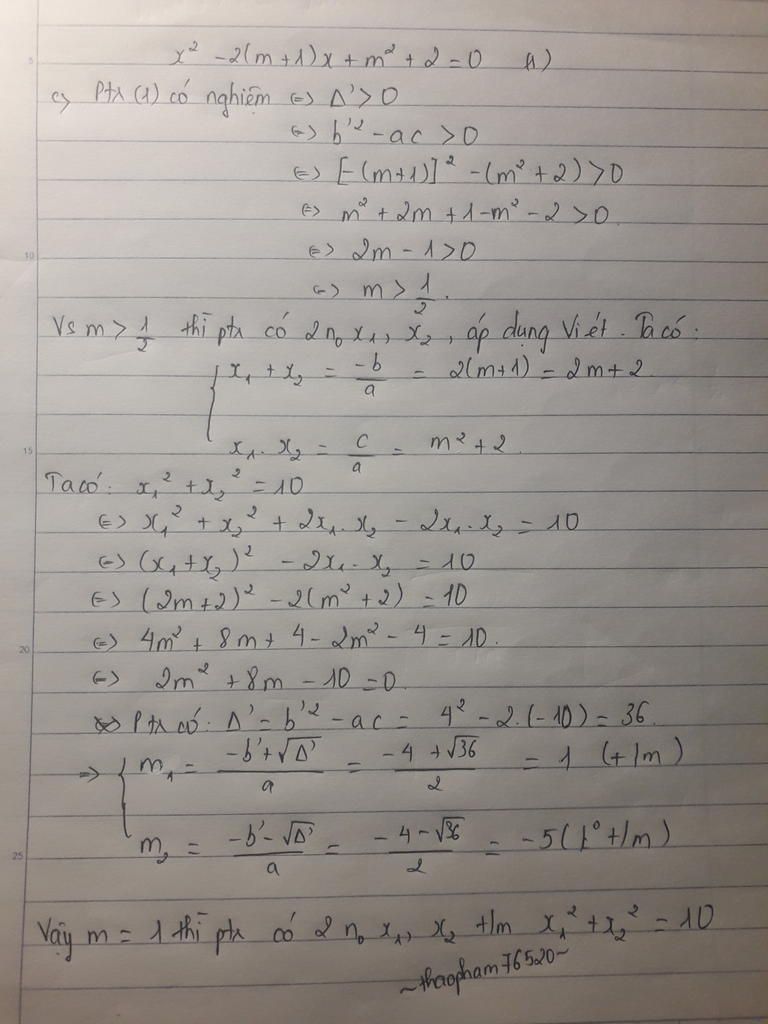 x² - 2(m+1)x + m² + 2 = 0 (1)
c) Ptx (1) có nghiệm <=> Δ' > 0
<=> b'² - ac > 0
<=> [-(m+1)]² - (m² + 2) > 0
<=> m² + 2m + 1 - m² - 2 > 0
<=> 2m - 1 > 0
<=> m > 1/2.
Vs m > 1/2 thì ptx có 2 no x₁, x₂, áp dụng Viét. Ta có:
{ x₁ + x₂ = -b/a = 2(m+1) = 2m + 2
x₁. x₂ = c/a = m² + 2
Ta có: x₁² + x₂² = 10
<=> x₁² + x₂² + 2x₁. x₂ - 2x₁. x₂ = 10
<=> (x₁ + x₂)² - 2x₁. x₂ = 10
<=> (2m + 2)² - 2(m² + 2) = 10
<=> 4m² + 8m + 4 - 2m² - 4 = 10.
<=> 2m² + 8m - 10 = 0
Ptx có: Δ' = b'² - ac = 4² - 2.(-10) = 36.
=> { m₁ = (-b' + √Δ')/a = (-4 + √36)/2 = 1 (t/m)
m₂ = (-b' - √Δ')/a = (-4 - √36)/2 = -5 (k° t/m)
Vậy m = 1 thì ptx có 2 no x₁, x₂ t/m x₁² + x₂² = 10
~thaopham76520~
5
10
15
20
25